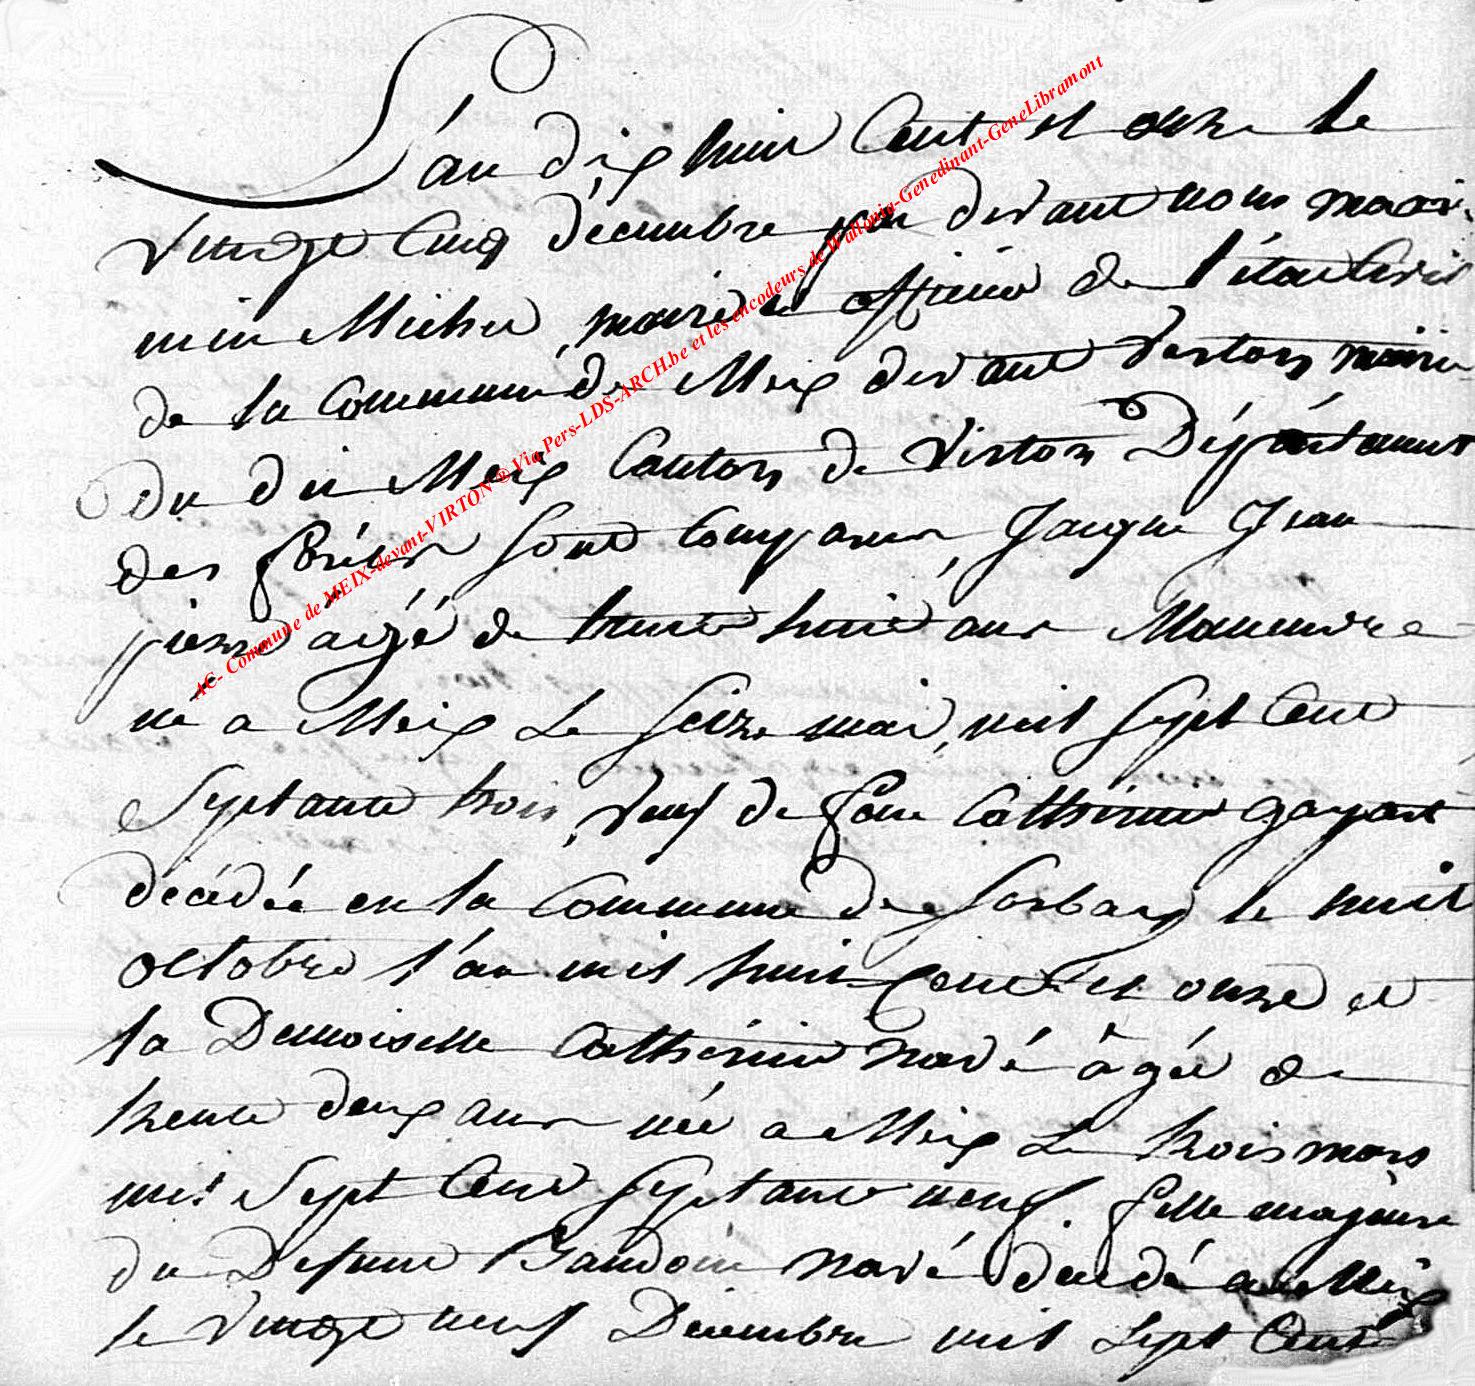 L'an dix huit Cent et onze le
vingt Cinq décembre par devant nous maxi-
min Michel, maire et officier de l'état Civil
de la Commune de Meix devant Virton mairie
du dit Meix Canton de Virton Département
des forêts sont Comparus, Jacque Jean
pierre aigé de trente huit ans Manœuvre
né a Meix Le Seize mai, mil Sept Cent
Septante trois, Veuf de feue Catherine gayart
décédée en la Commune de Sorbay le huit
octobre l'an mil huit Cent et onze et
la Demoiselle Catherine navé âgée de
trente deux ans née a Meix Le trois mars
mil Sept Cent Septante neuf. fille majeure
du Defunt Baudoin navé décédé a Meix
le Vingt neuf Décembre mil Sept Cent
AC- Commune de MEIX-devant-VIRTON ® Via Pers-LDS-ARCH.be et les encodeurs de Wallonia-Genedinant-GeneLibramont